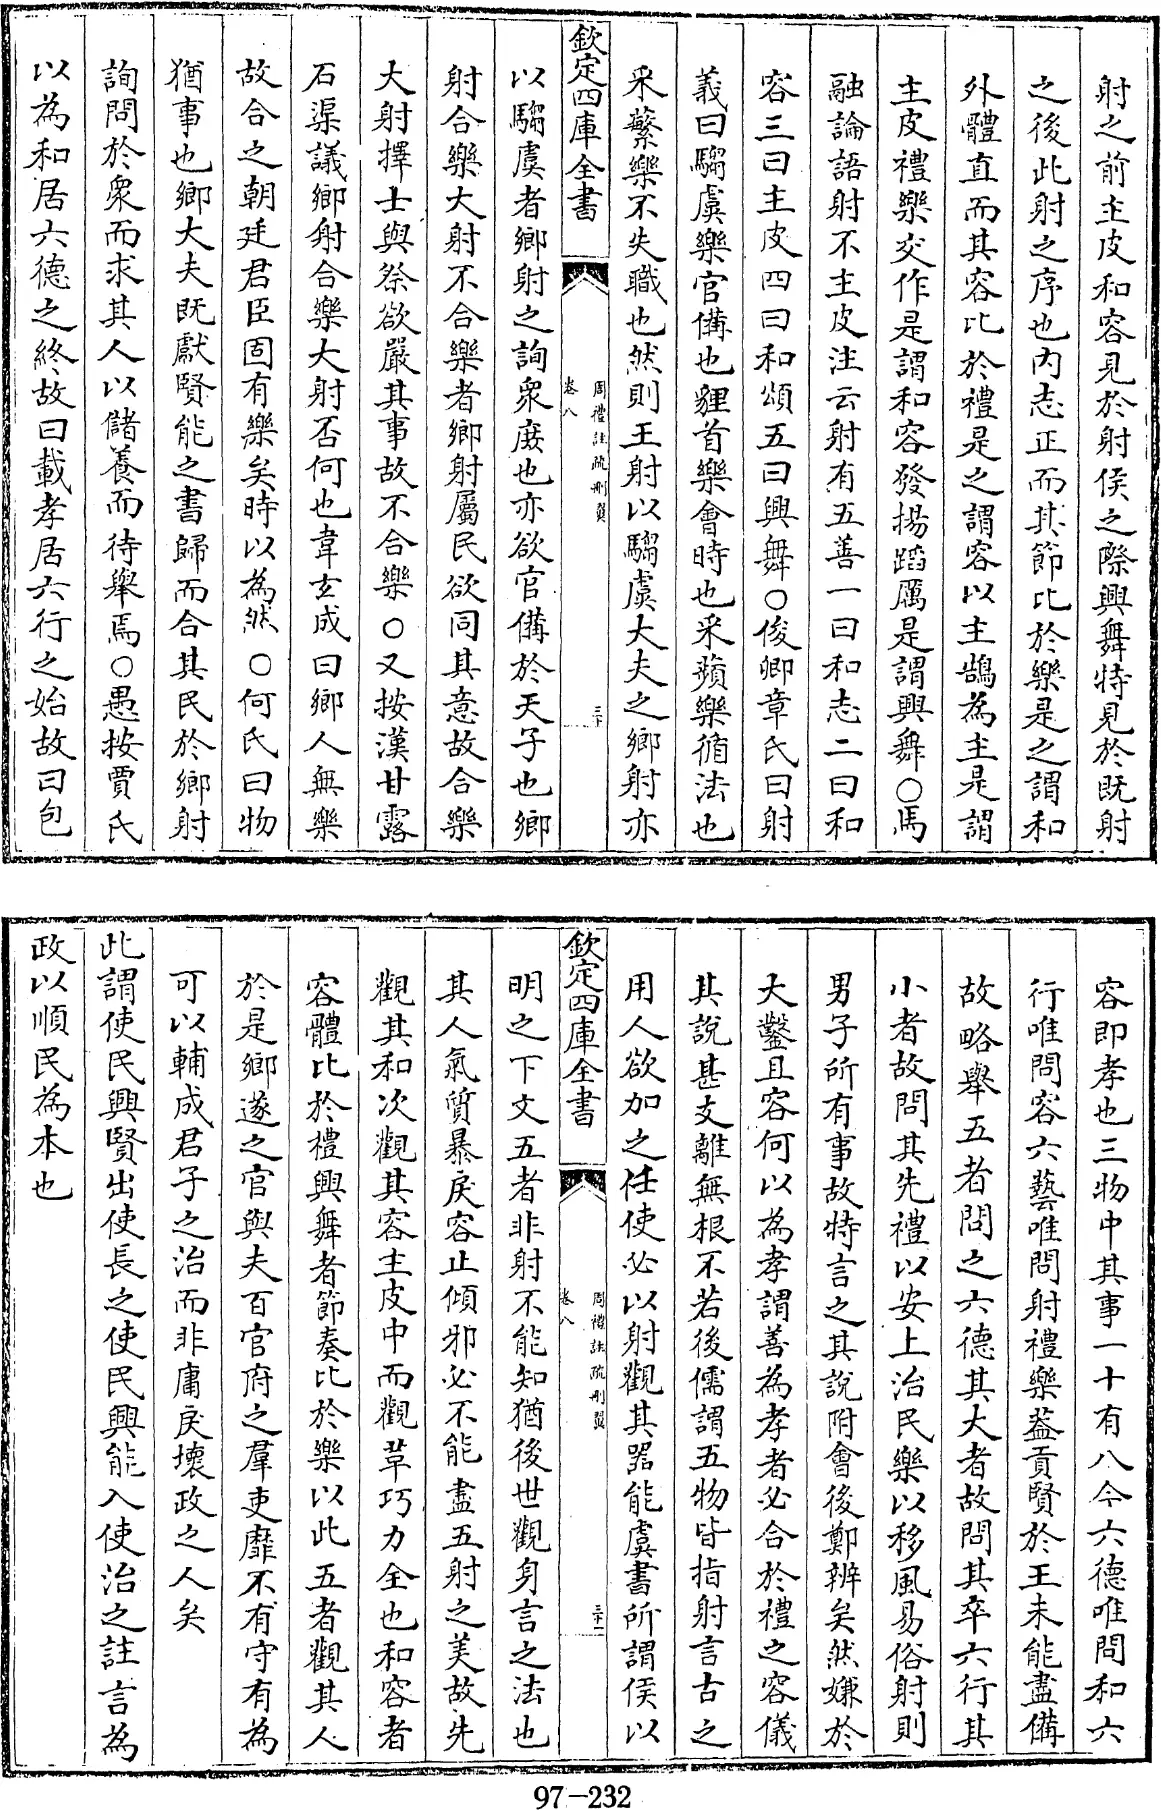 射之前主皮和容見於射侯之際興舞特見於既射
之後此射之序也内志正而其節比於樂是之謂和
外體直而其容比於禮是之謂容以主鵠為主是謂
主皮禮樂交作是謂和容發揚蹈厲是謂興舞○馬
融論語射不主皮注云射有五善一曰和志二曰和
容三曰主皮四曰和頌五曰興舞○俊卿章氏曰射
義曰騶虞樂官備也貍首樂會時也采蘋樂循法也
采蘩樂不失職也然則王射以騶虞大夫之鄉射亦
欽定四庫全書
周禮註疏刪翼
卷八
三十
以騶虞者鄉射之詢衆庶也亦欲官備於天子也鄉
射合樂大射不合樂者鄉射屬民欲同其意故合樂
大射擇士與祭欲嚴其事故不合樂○又按漢甘露
石渠議鄉射合樂大射否何也韋玄成曰鄉人無樂
故合之朝廷君臣固有樂矣時以為然○何氏曰物
猶事也鄉大夫既獻賢能之書歸而合其民於鄉射
詢問於衆而求其人以儲養而待舉焉○愚按賈氏
以為和居六德之終故曰載孝居六行之始故曰包
容即孝也三物中其事一十有八今六德唯問和六
行唯問容六藝唯問射禮樂葢貢賢於王未能盡備
故略舉五者問之六德其大者故問其卒六行其
小者故問其先禮以安上治民樂以移風易俗射則
男子所有事故特言之其説附會後鄭辨矣然嫌於
大鑿且容何以為孝謂善為孝者必合於禮之容儀
其說甚支離無根不若後儒謂五物皆指射言古之
用人欲加之任使必以射觀其器能虞書所謂侯以
欽定四庫全書
周禮註疏刪翼
卷八
三十一
明之下文五者非射不能知猶後世觀身言之法也
其人氣質暴戾容止傾邪必不能盡五射之美故先
觀其和次觀其容主皮中而觀革巧力全也和容者
容體比於禮興舞者節奏比於樂以此五者觀其人
於是鄉遂之官與夫百官府之羣吏靡不有守有為
可以輔成君子之治而非庸戾壞政之人矣
此謂使民興賢出使長之使民興能入使治之註言為
政以順民為本也
97-232